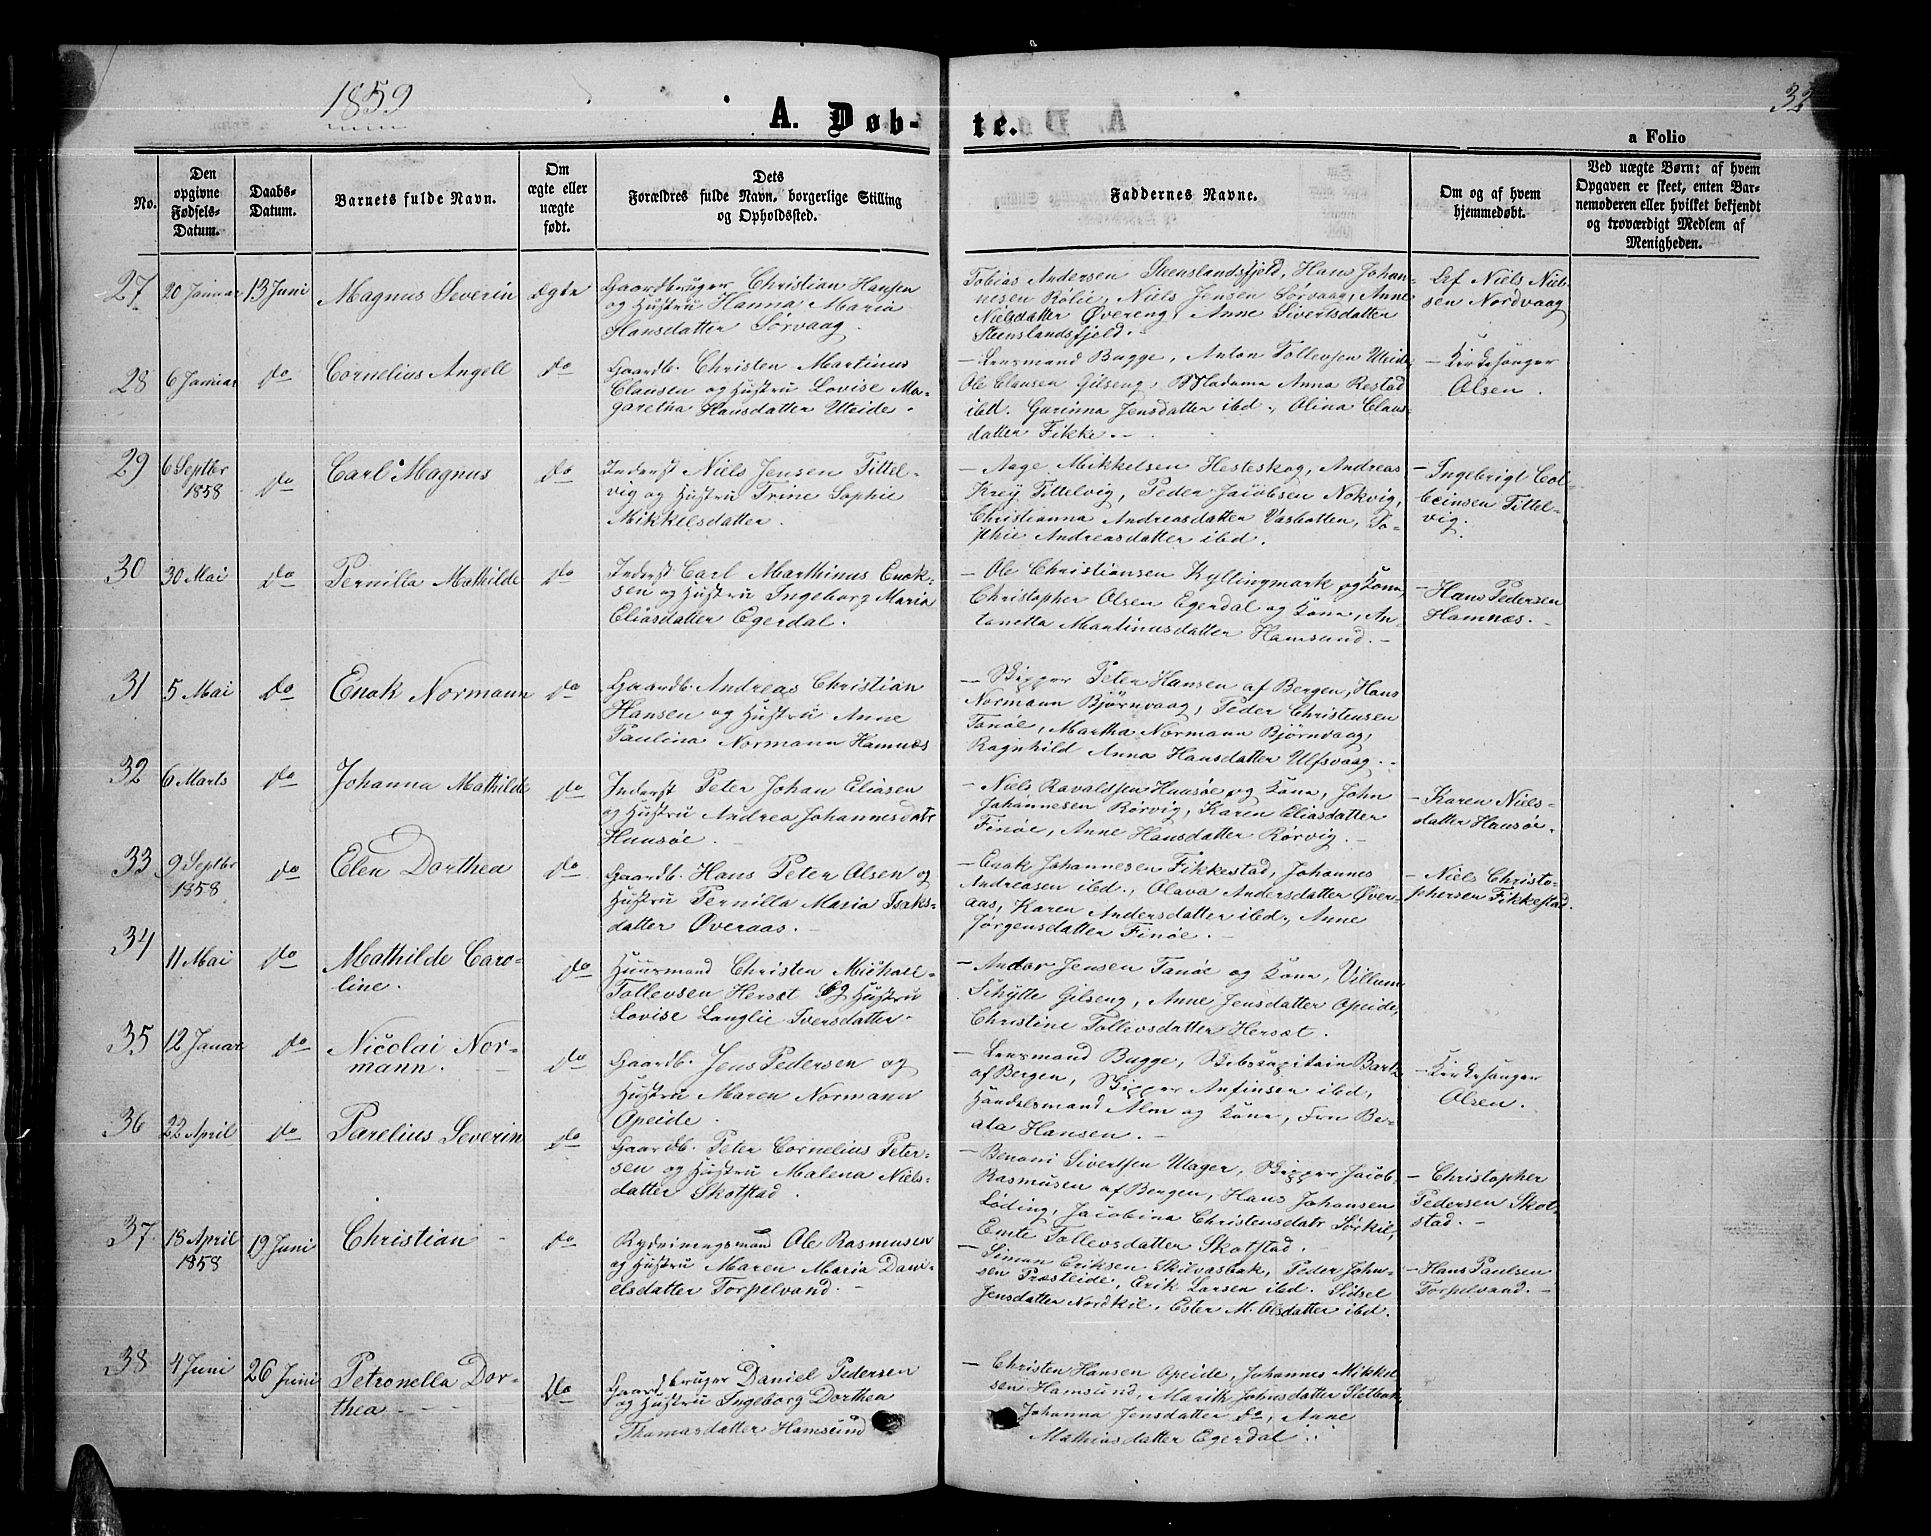 1859
A. Døb-
te.
32
a Folio
No.
Den
opgivne
Fødsels-
Datum.
Daabs-
Datum.
Barnets fulde Navn.
Om
ægte eller
uægte
født.
Dets
Forældres fulde Navn, borgerlige Stilling
og Opholdssted.
Faddernes Navne.
Om og af hvem
hjemmedøbt.
Ved uægte Børn: af hvem
Opgaven er skeet, enten Bar-
nemoderen eller hvilket bekjendt
og troværdigt Medlem af
Menigheden.
27 20 Januar 13 Juni Magnus Severin ægte
Gaardbruger Christian Hansen
og Hustru Hanna Maria
Hansdatter Sørvaag.
Tobias Andersen Steenslandsfjeld, Hans Johan-
nesen Rolie, Niels Jensen Sørvaag, Anne
Nielsdatter Øvereng, Anne Sivertsdatter
Steenslandsfjeld.
af Niels Niel-
sen Nordvaag
28 6 Januar do Cornelius Angell do
Gaardb. Christen Martinus
Clausen og Hustru Lovise Ma-
garetha Hansdatter Uteide.
- Lensmand Bugge, Anton Tollevsen Uteide,
Ole Clausen Gilseng, Madama Anna Restad
ibd. Gurinna Jensdatter ibd., Olina Claus-
datter Fikke.
- Kirkesanger
Olsen.
29 6 Septbr
1858 do Carl Magnus do
Inderst Niels Jensen Tittel-
vig og Hustru Trine Sophie
Mikkelsdatter.
- Aage Mikkelsen Hesteskog, Andreas
Krey Tittelvig, Peder Jacobsen Nokvig,
Christianna Andreasdatter Vasbotten, So-
phie Andreasdatter ibd.
- Ingebrigt Col-
beinsen Tittel-
vig.
30 30 Mai do Pernilla Mathilde do
Inderst Carl Marthinus Enok-
sen og Hustru Ingeborg Maria
Eliasdatter Egerdal.
- Ole Christiansen Kyllingmark og Kone,
Christopher Olsen Egerdal og Kone, An-
tonetta Martinusdatter Hamsund.
- Hans Pedersen
Hamnæs.
31 5 Mai do Enok Normann do
Gaardb. Andreas Christian
Hansen og Hustru Anne
Paulina Normann Hamnæs
- Skipper Peter Hansen af Bergen, Hans
Normann Bjørnvaag, Peder Christensen
Tanøe, Martha Normann Bjørnvaag,
Ragnhild Anna Hansdatter Ulfsvaag.
32 6 Marts do Johanna Mathilde do
Inderst Peter Johan Eliasen
og Hustru Andrea Johannesdatr
Hunsøe.
- Niels Ravaldsen Hunsøe og Kone, John
Johannesen Rørvig, Karen Eliasdatter
Finøe, Anne Hansdatter Rørvig.
- Karen Niels-
datter Hansøe.
33 9 Septbr
1858 do Elen Dorthea do
Gaardb. Hans Peter Olsen og
Hustru Pernilla Maria Isaks-
datter Øveraas.
- Enok Johannesen Fikkestad, Johannes
Andreasen ibd., Olava Andersdatter Øver-
aas, Karen Andersdatter ibd., Anne
Jørgensdatter Finøe.
- Niels Christo-
phersen Fikkestad.
34 11 Mai do Mathilde Caro-
line. do
Huusmand Christen Michael
Tollevsen Hersæt og Hustru
Lovise Langlie Iversdatter.
- Andor Jensen Tanøe og Kone, Villum
Schytte Gilseng, Anne Jensdatter Opeide,
Christine Tollevsdatter Hersæt.
35 12 Januar do Nicolai Nor-
mann. do
Gaardb. Jens Pedersen og
Hustru Maren Normann
Opeide.
- Lensmand Bugge, Skibscapitain Bartz
af Bergen, Skipper Anfinsen ibd,
Handelsmand Alm og Kone, Frn Be-
ata Hansen.
- Kirkesanger
Olsen.
36 22 April do Parelius Severin do
Gaardb. Peter Cornelius Peter-
sen og Hustru Malena Niels-
datter Skotstad.
- Benoni Sivertsen Ulager, Skipper Jacob
Rasmusen af Bergen, Hans Johansen
Løding, Jacobina Christensdatr Sørkil,
Emte Tollevsdatter Skotstad.
- Christopher
Pedersen Skot-
stad.
37 18 April
1858 19 Juni Christian do
Rydningsmand Ole Rasmusen
og Hustru Maren Maria Dani-
elsdatter Torpelvand.
- Siman Eriksen Skilvasbak, Peder John-
sen Præsteide, Erik Larsen ibd. Sidsel
Jensdatter Nordkil, Ester M. Olsdatter ibd.
- Hans Paulsen
Torpelvand.
38 4 Juni 26 Juni Petronella Dor-
thea do
Gaardbruger Daniel Pedersen
og Hustru Ingeborg Dorthea
Thomasdatter Hamsund
- Christen Hansen Opeide, Johannes Mikkel
sen Hamsund, Marith Johnsdatter Sletbak
Johanna Jensdatter do, Anne
Mathiasdatter Egerdal.